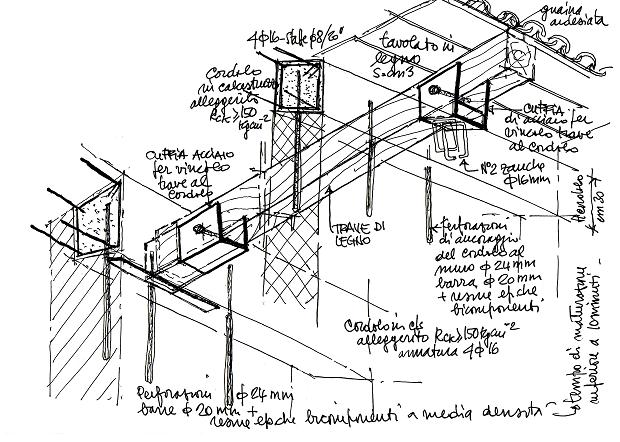 guaina
ardesiata
4ϕ16-staffe ϕ8/20"
tavolato in
legno
S=cm3
Cordolo
in calcestruzzo
alleggerito
Rck≥150
kgcm⁻²
cuffia
di acciaio per
vincolo trave
al cordolo
cuffia acciaio
per vincolo
trave al
cordolo
N°2 zanche
ϕ16mm
TRAVE DI
LEGNO
Perforazioni
di ancoraggio
del cordolo al
muro ϕ24mm
barra ϕ20mm
+ resine epche
bicomponenti
cm 20
Cordolo in cls
alleggerito Rck≥150kgcm⁻²
armatura 4ϕ16
Perforazioni ϕ24mm
barre ϕ20mm +
resine epche bicomponenti a media densità
tempo di maturazione
inferiore a 10 minuti